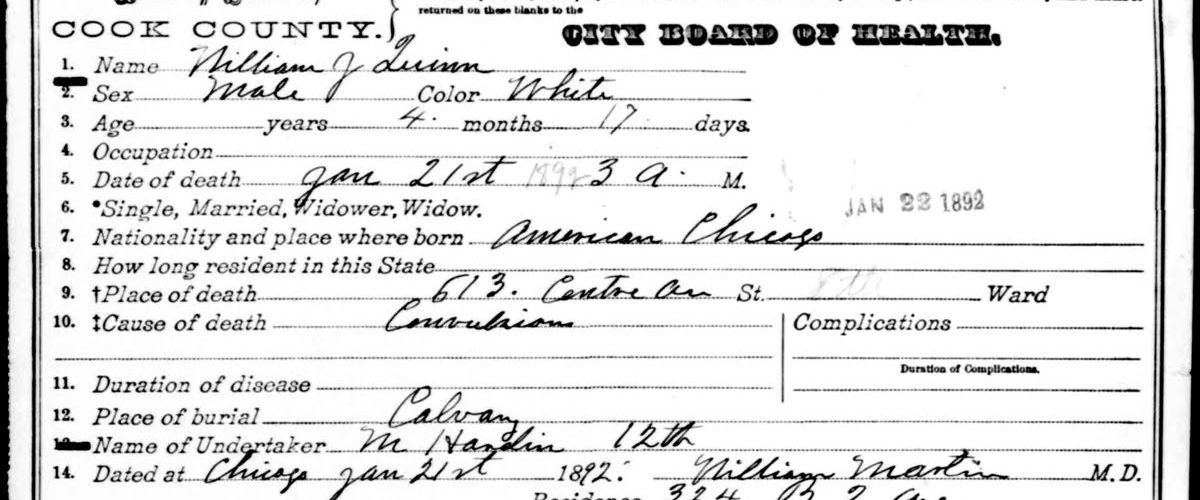 returned on these blanks to the
COOK COUNTY.} CITY BOARD OF HEALTH.
1. Name William J Quinn
2. Sex Male Color White
3. Age years 4. months 17. days.
4. Occupation
5. Date of death Jan 21st 1892 3 a. M.
JAN 22 1892
6. *Single, Married, Widower, Widow.
7. Nationality and place where born American Chicago
8. How long resident in this State
9. †Place of death 613. Centre av St. 8th Ward
10. ‡Cause of death Convulsions Complications
Duration of Complications.
11. Duration of disease
12. Place of burial Calvary
13. Name of Undertaker M 12th
14. Dated at Chicago Jan 21st 1892. William Martin M.D.
Residence 324